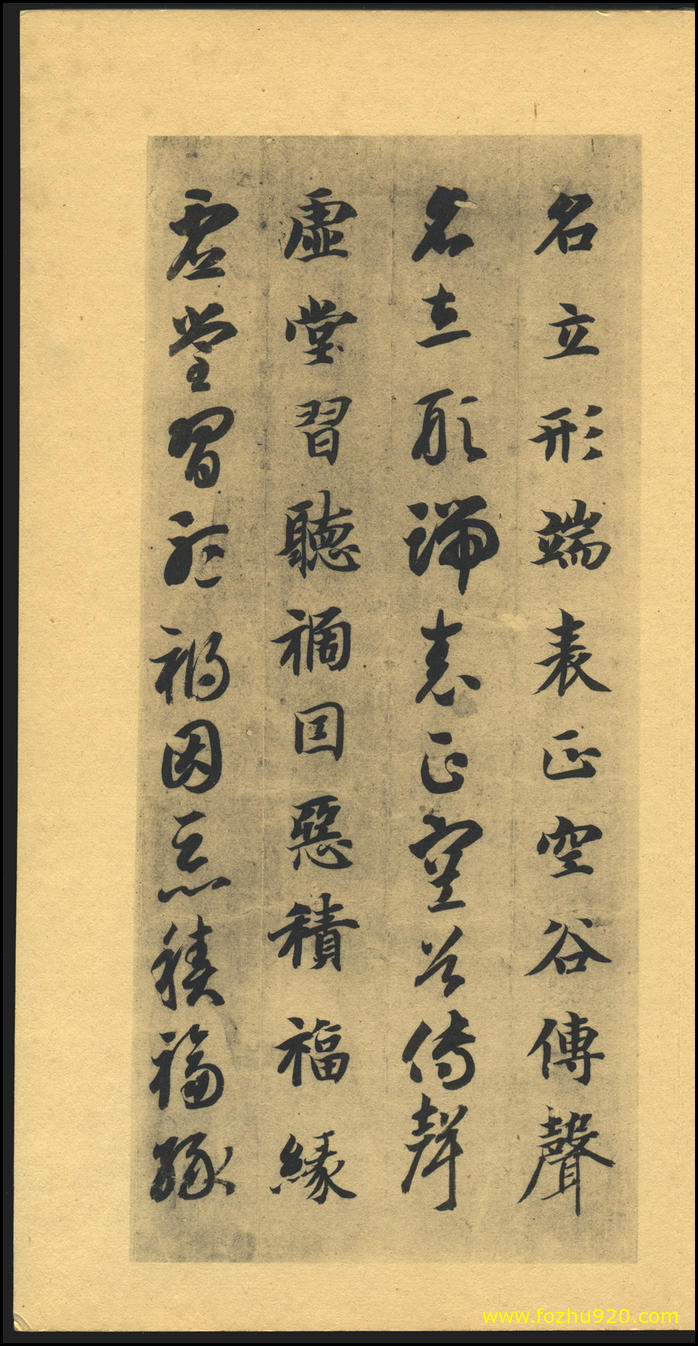 名立形端表正空谷傳聲
名立形端表正空谷傳聲
虛堂習聽禍因惡積福緣
虛堂習聽禍因惡積福緣
www.fozhu920.com